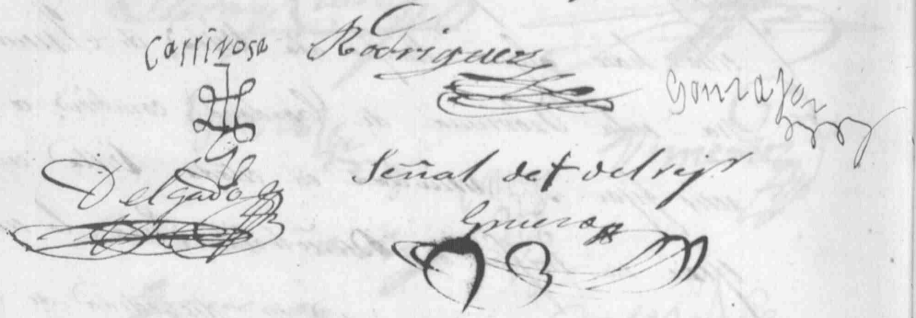 Carrinosa Rodriguez
Gonzalez
Delgado
Señal de + del rejr